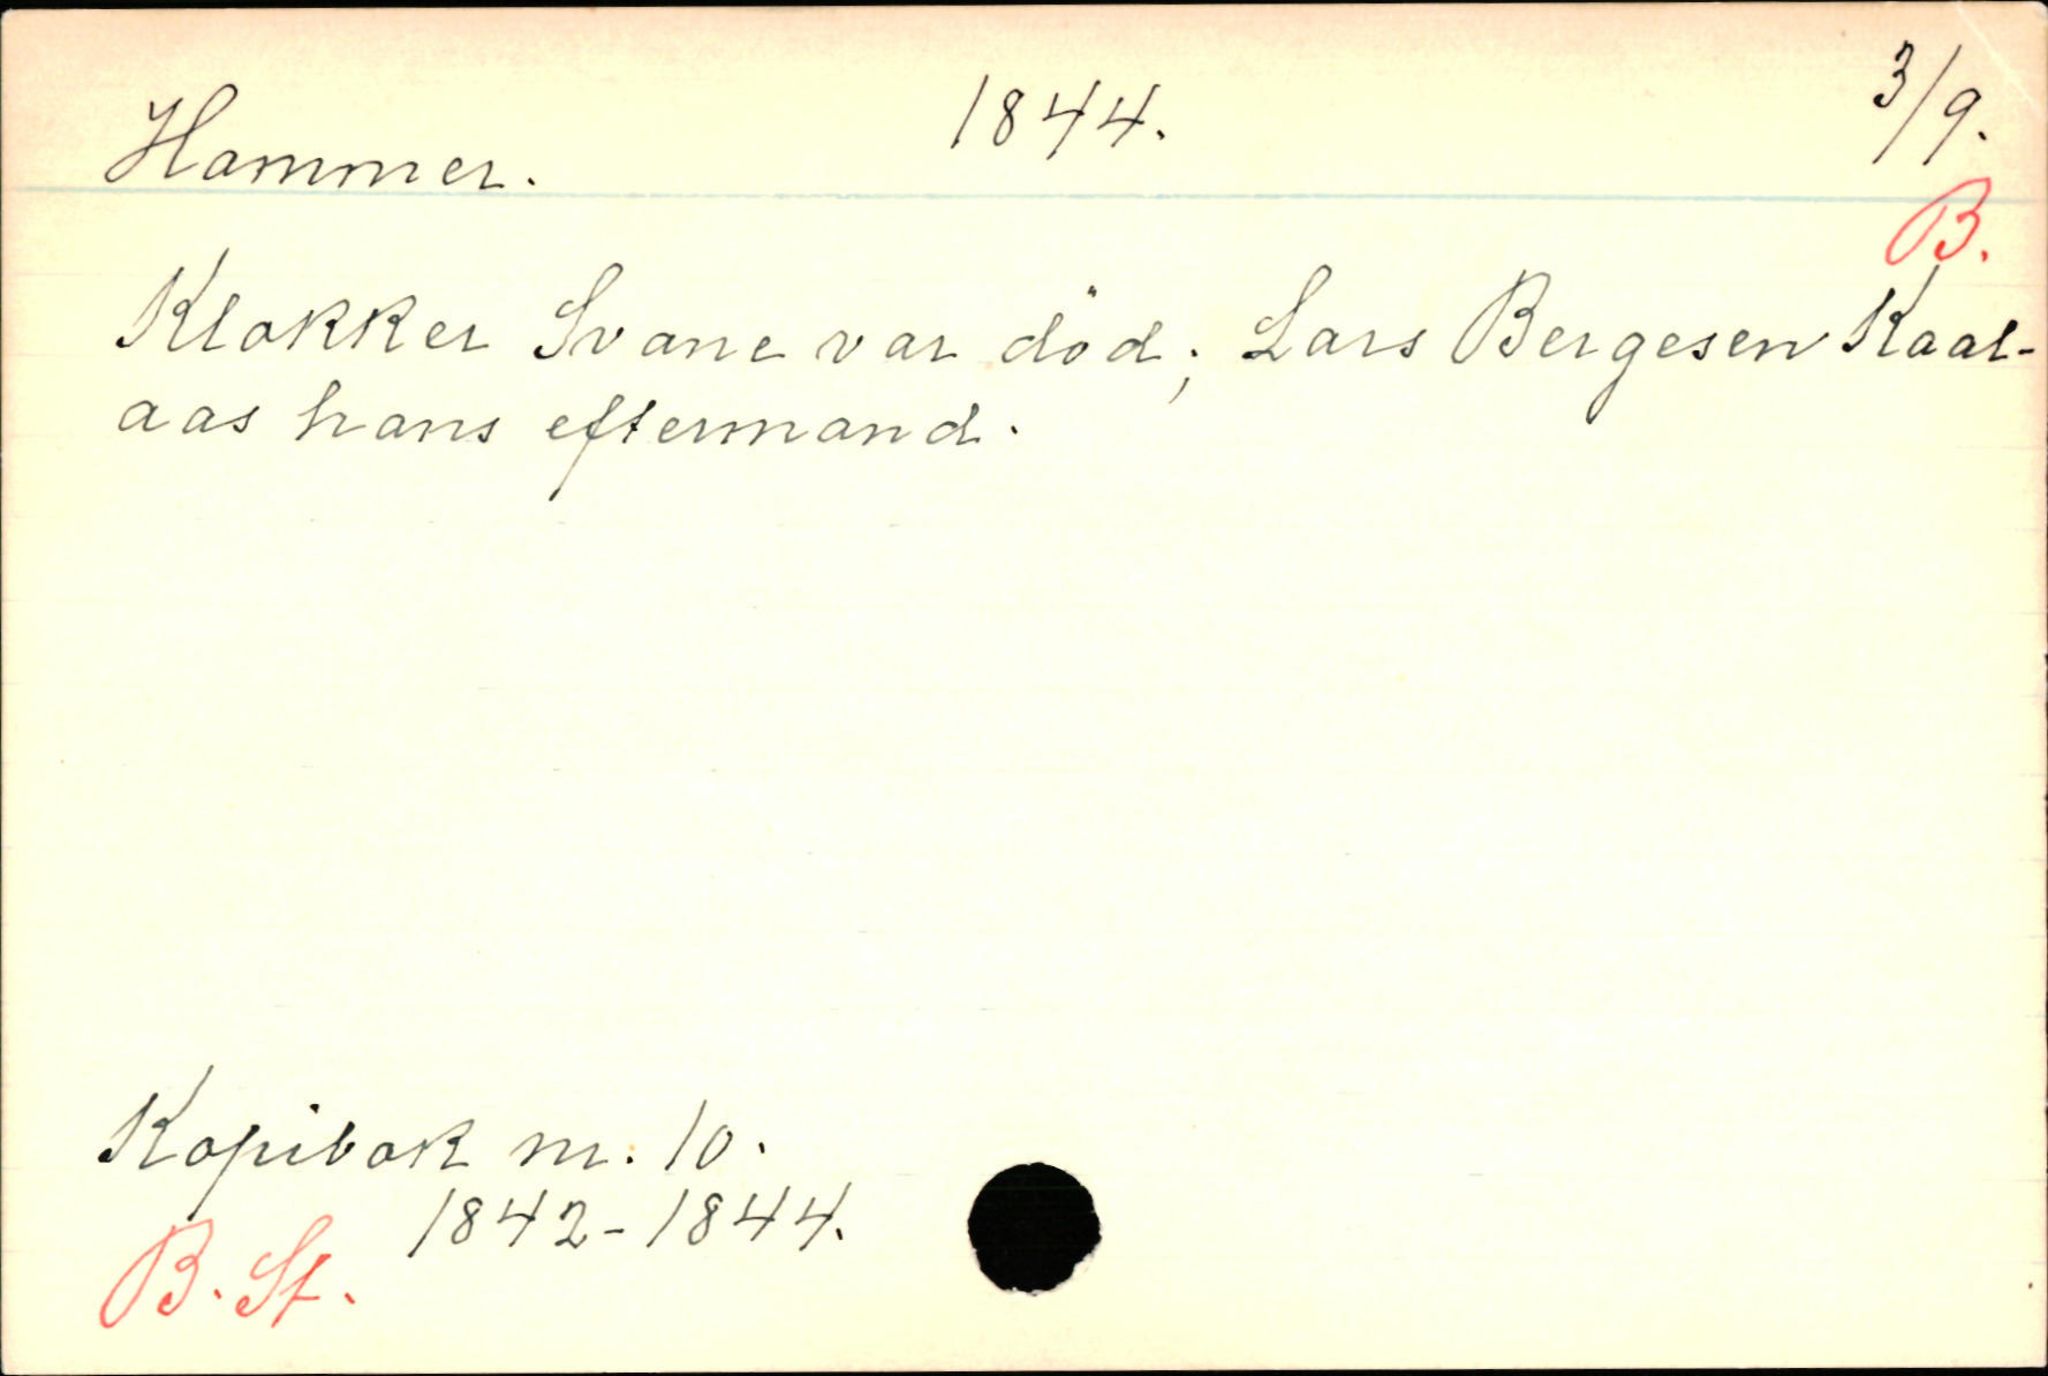 Hammer. 1844. 3/9.
B.
Klokker Svane var död; Lars Bergesen Kaal-
aas hans eftermand.
Kopibok nr. 10.
1842-1844.
B. St.